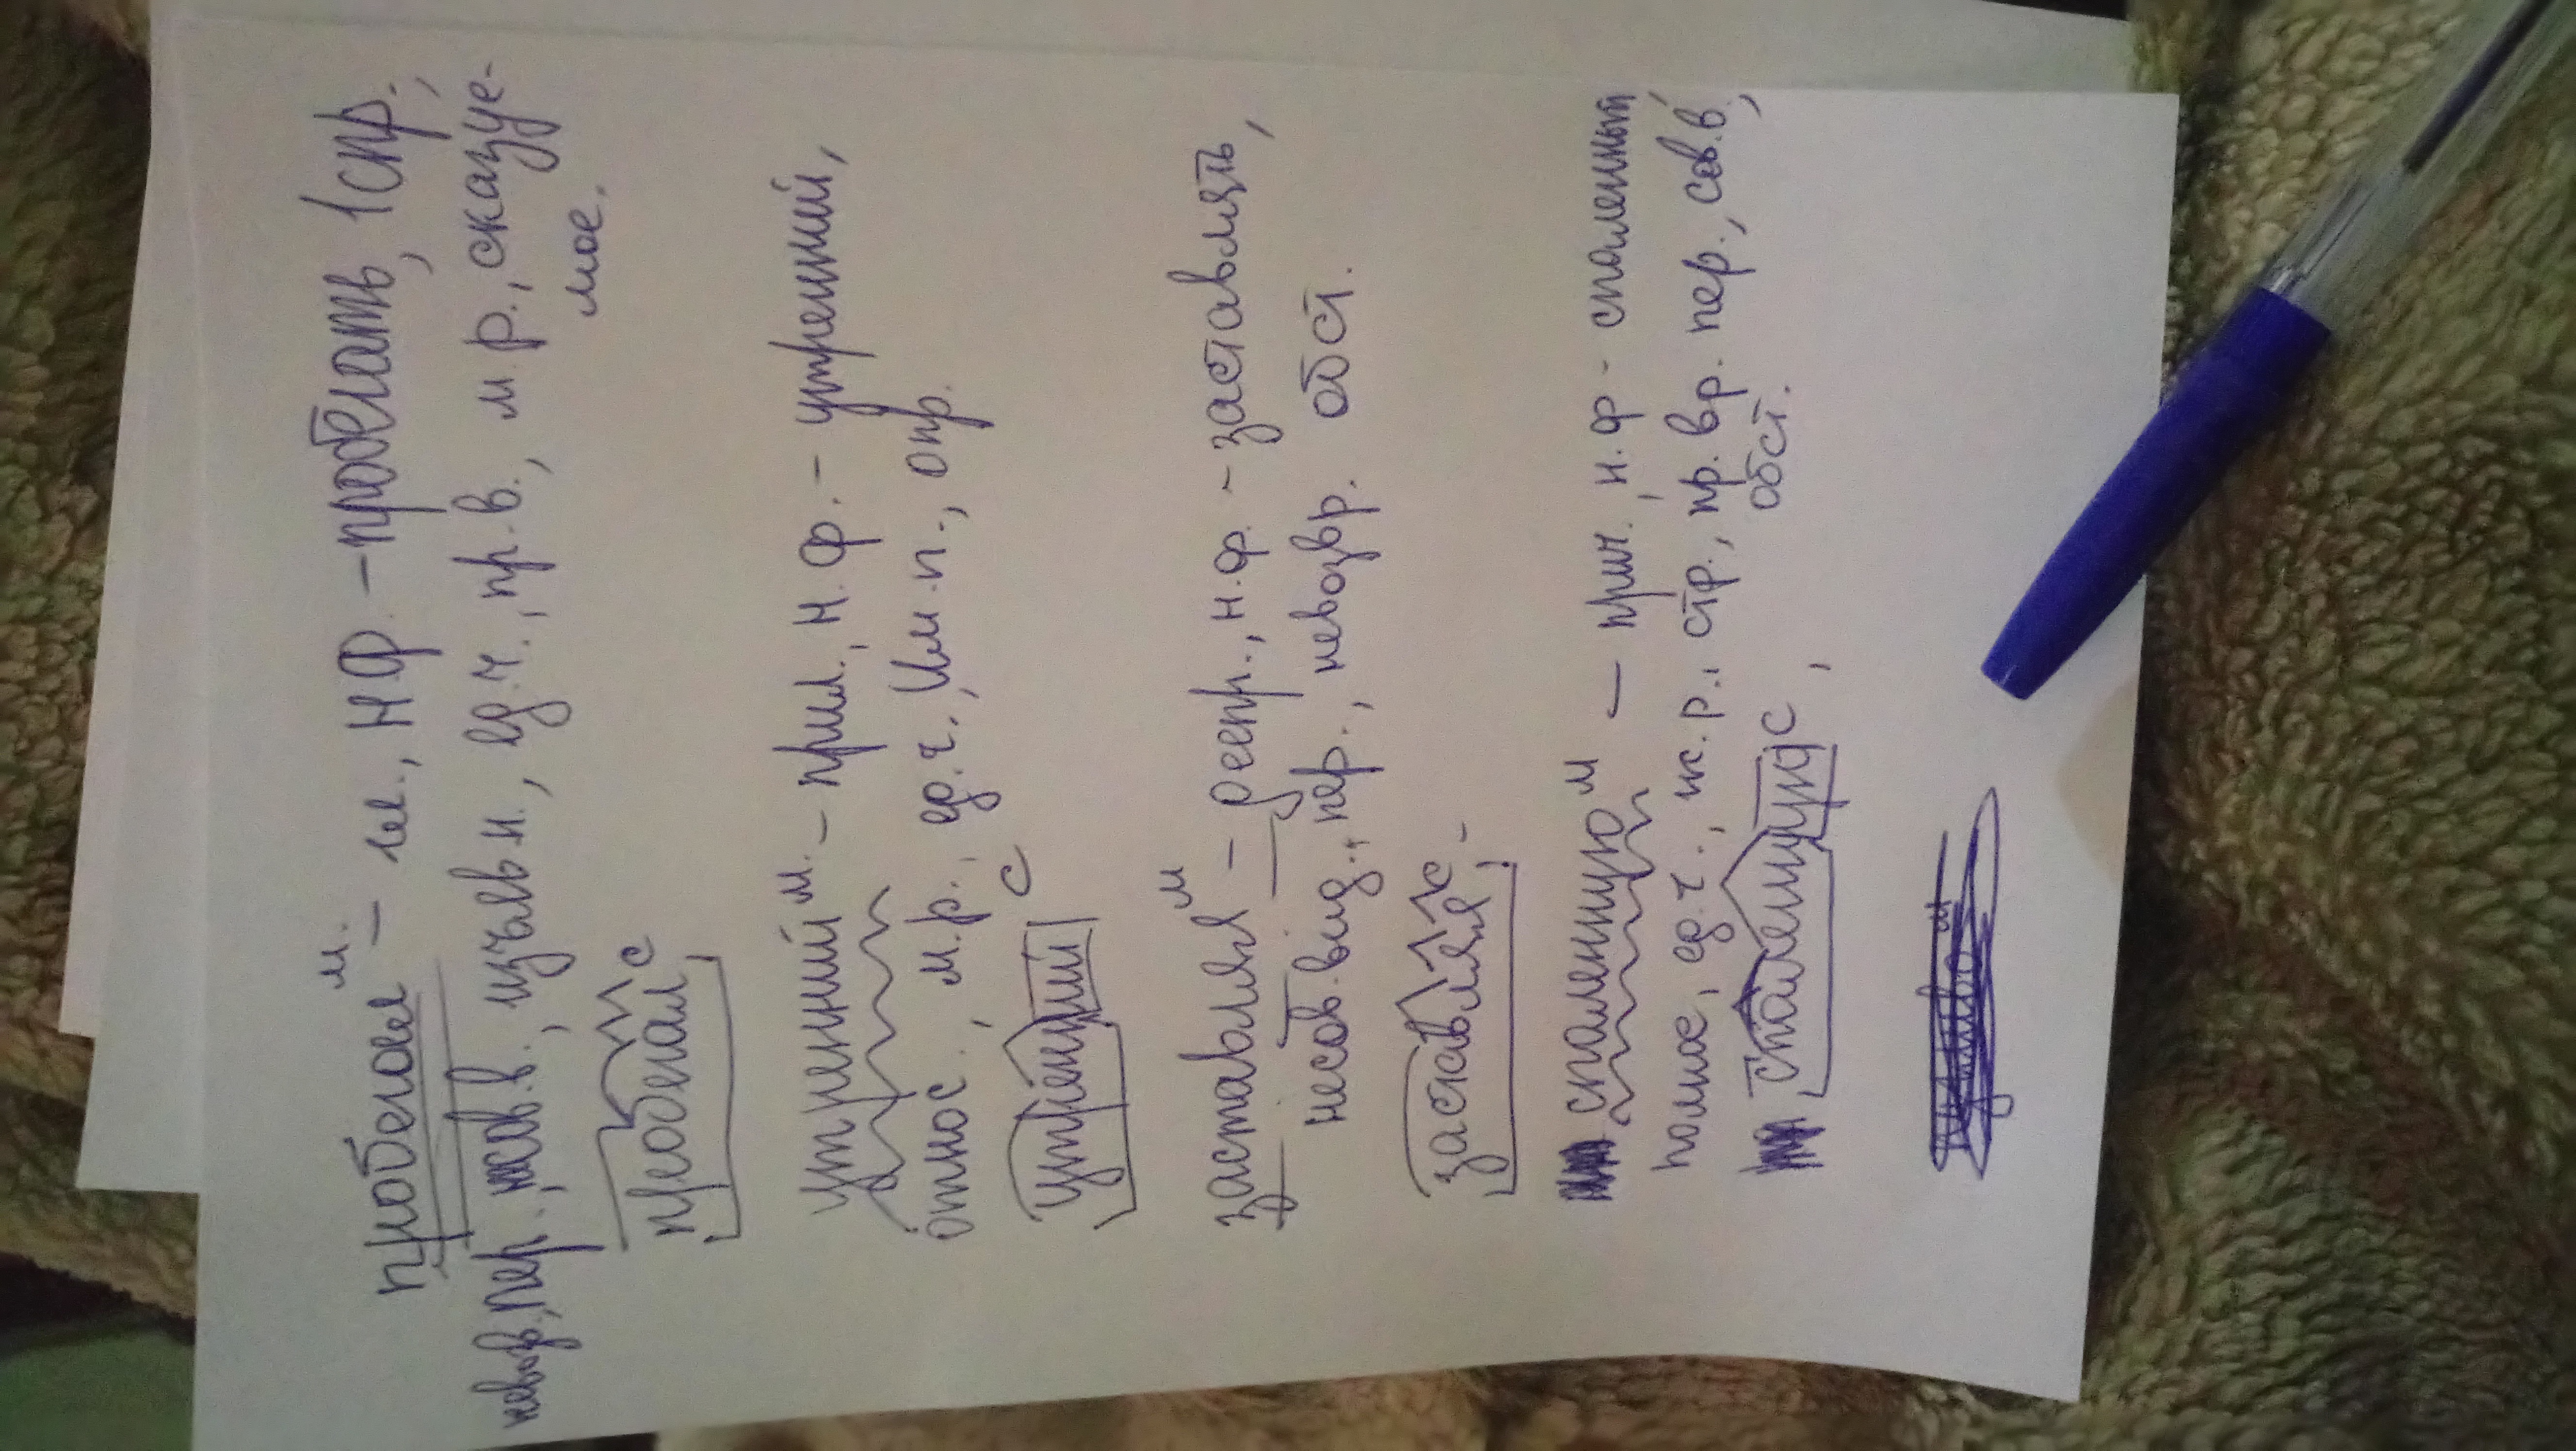 пробегал м. – гл., н.ф. – пробегать, 1 спр.,
невозв., пер., несов.в., изъяв.н., ед.ч., пр.в., м.р., сказуе-
мое.
пробегал с
утренний м. – прил., н.ф. – утренний,
относ., м.р., ед.ч., Им.п., опр.
утренний с
заставляя м – деепр., н.ф. – заставлять,
несов.вид., пер., невозвр. обст.
заставляя с
спаленную м – прич., н.ф – спаленный,
полное, ед.ч., ж.р., стр., пр.вр. пер., сов.в,
обст.
спаленную с